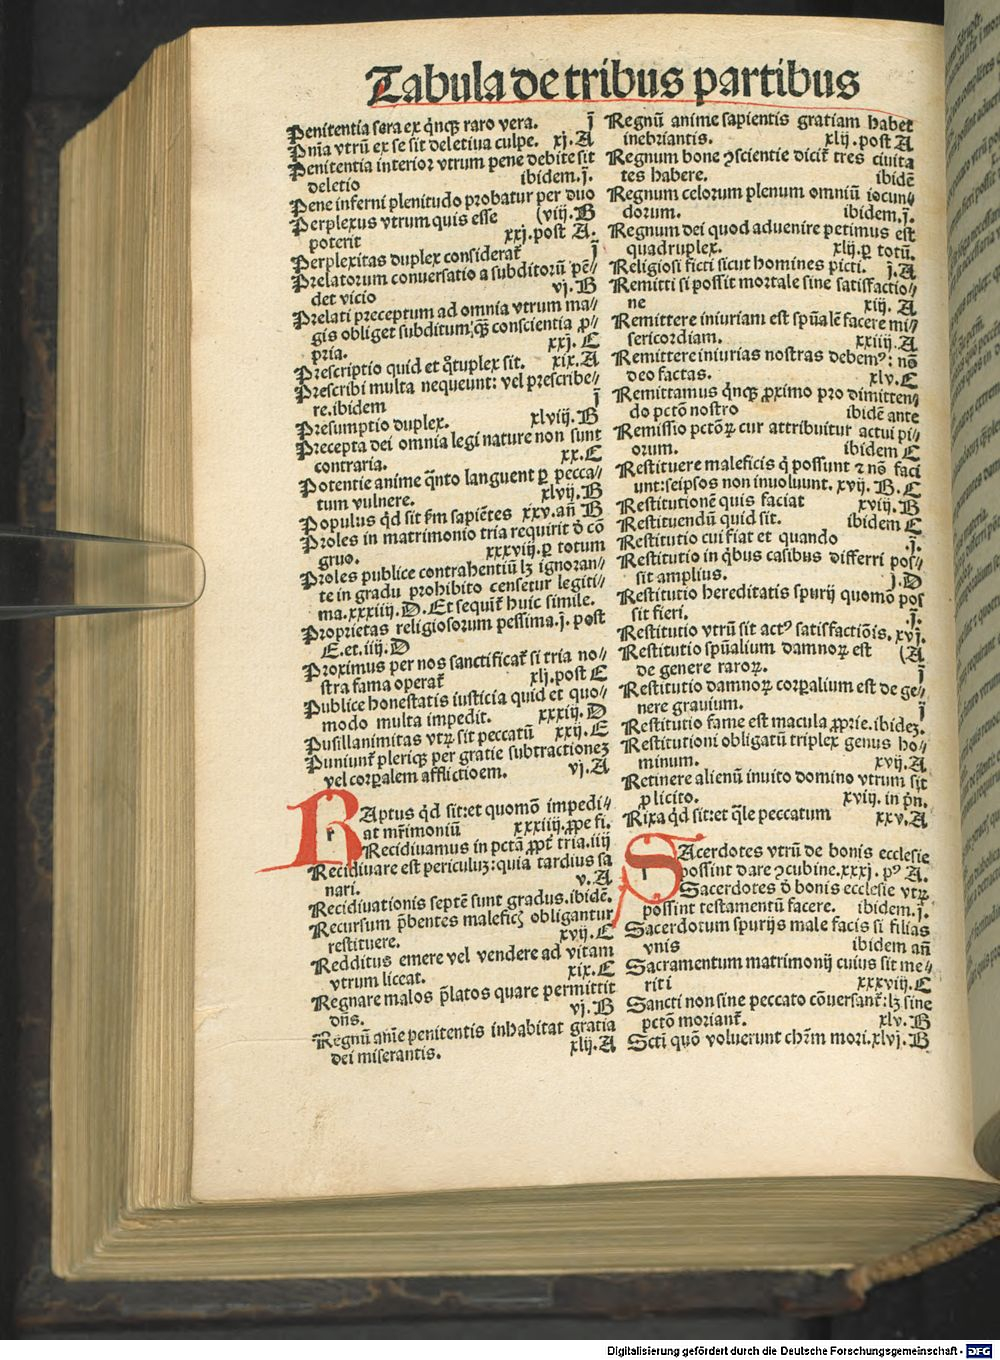 Tabula de tribus partibus
Penitentia sera ex q̇nq̃ raro vera. ī
Pn̄ia vtrū ex se sit deletiua culpe. xj. A
Penitentia interior vtrum pene debite sit
deletio ibidem. j̄.
Pene inferni plenitudo probatur per duo
Perplexus vtrum quis esse (viij. B
poterit xxj. post A.
Perplexitas duplex considerat̃ ī
Prelatorum conuersatio a subditorū pē⸗
det vicio vj. B
Prelati preceptum ad omnia vtrum ma⸗
gis obliget subditum: q̃ꝫ conscientia ꝓ⸗
pria. xxj. C
Prescriptio quid et q̃tuplex sit. xix. A
Prescribi multa nequeunt: vel prescribe⸗
re. ibidem ī
Presumptio duplex. xlviij. B
Precepta dei omnia legi nature non sunt
contraria. xx. C
Potentie anime q̃nto languent ꝑ pecca⸗
tum vulnere. xlvij. B
Populus q̇d sit s̃m sapiētes xxv. añ B
Proles in matrimonio tria requirit ō cō
gruo. xxxviij. ꝑ totum
Proles publice contrahentiū lꝫ ignoran⸗
te in gradu prohibito censetur legiti⸗
ma. xxxiiij. D. Et sequit̃ huic simile.
Proprietas religiosorum pessima. j. post
E. et. iiij. D
Proximus per nos sanctificat̃ si tria no⸗
stra fama operat̃ xlj. post E
Publice honestatis iusticia quid et quo⸗
modo multa impedit. xxxiij. D
Pusillanimitas vtꝝ sit peccatū xxij. E
Puniunt̃ plerique per gratie subtractionez
vel corꝑalem afflictioem. vj. A
RAptus q̇d sit: et quomō impedi⸗
at mr̃imoniū xxxiiij. ꝓpe fi.
Recidiuamus in pctā ꝓpt̃ tria. iiij
Recidiuare est periculuꝫ: quia tardius sa
nari. v. A
Recidiuationis septē sunt gradus. ibidē.
Recursum p̄bentes maleficꝫ obligantur
restituere. xvij. C
Redditus emere vel vendere ad vitam
vtrum liceat. xix. C
Regnare malos p̄latos quare permittit
dn̄s. vj. B
Regnū aīe penitentis inhabitat gratia
dei miserantis. xlij. A
Regnū anime sapientis gratiam habet
inebriantis. xlij. post A
Regnum bone ꝯscientie dicit̃ tres ciuita
tes habere. ibidē
Regnum celorum plenum omniū iocun⸗
dorum. ibidem. j̄.
Regnum dei quod aduenire petimus est
quadruplex. xlij. ꝑ totū.
Religiosi ficti sicut homines picti. j̄. A
Remitti si possit mortale sine satisfactio⸗
ne xiij. A
Remittere iniuriam est spūalē facere mi⸗
sericordiam. xxiiij. A
Remittere iniurias nostras debemꝰ: nō
deo factas. xlv. C
Remittamus q̇nqꝫ ꝓximo pro dimitten⸗
do pctō nostro ibidē ante
Remissio pctōꝝ cur attribuitur actui pi⸗
orum. ibidem C
Restituere maleficis q̇ possunt ⁊ nō faci
unt: seipsos non inuoluunt. xvij. B. C
Restitutionē quis faciat xviij. B
Restituendū quid sit. ibidem C
Restitutio cui fiat et quando . j̄.
Restitutio in q̇bus casibus differri pos⸗
sit amplius. j. D
Restitutio hereditatis spurij quomō pos
sit fieri. . j̄.
Restitutio vtrū sit actꝰ satisfactiōis. xvj.
Restitutio spūalium damnoꝝ est (A
de genere raroꝝ. ī
Restitutio damnoꝝ corꝑalium est de ge⸗
nere grauium. ī
Restitutio fame est macula ꝓprie. ibideꝫ.
Restitutioni obligatū triplex genus ho⸗
minum. xvij. A
Retinere alienū inuito domino vtrum sit
ꝑ licito. xviij. in pn̄.
Rixa q̇d sit: et q̃le peccatum xxv. A
SAcerdotes vtrū de bonis ecclesie
possint dare ꝯcubine. xxxj. pꝰ A.
Sacerdotes ō bonis ecclesie vtꝝ
possint testamentū facere. ibidem. j̄.
Sacerdotum spurijs male facis si filias
vnis ibidem añ
Sacramentum matrimonij cuius sit me⸗
riti xxxviij. C
Sancti non sine peccato cōuersant̃: lꝫ sine
pctō moriant̃. xlv. B
Scti quō voluerunt chr̃m mori. xlvj. B
Digitalisierung gefördert durch die Deutsche Forschungsgemeinschaft - DFG